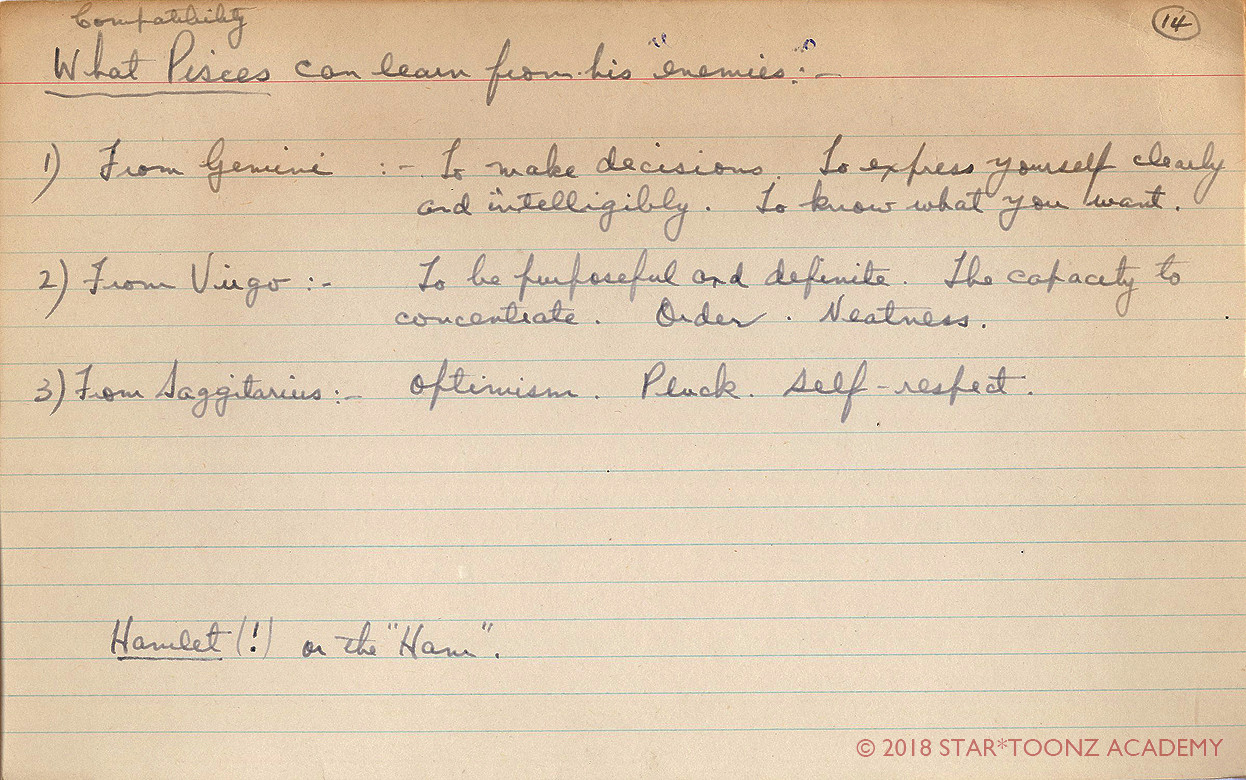 Compatibility
14
What Pisces can learn from his "enemies":-
1) From Gemini :- To make decisions. To express yourself clearly
and intelligibly. To know what you want.
2) From Virgo :- To be purposeful and definite. The capacity to
concentrate. Order. Neatness.
3) From Saggitarius :- Optimism. Pluck. Self-respect.
Hamlet (!) or the "Ham".
© 2018 STAR*TOONZ ACADEMY